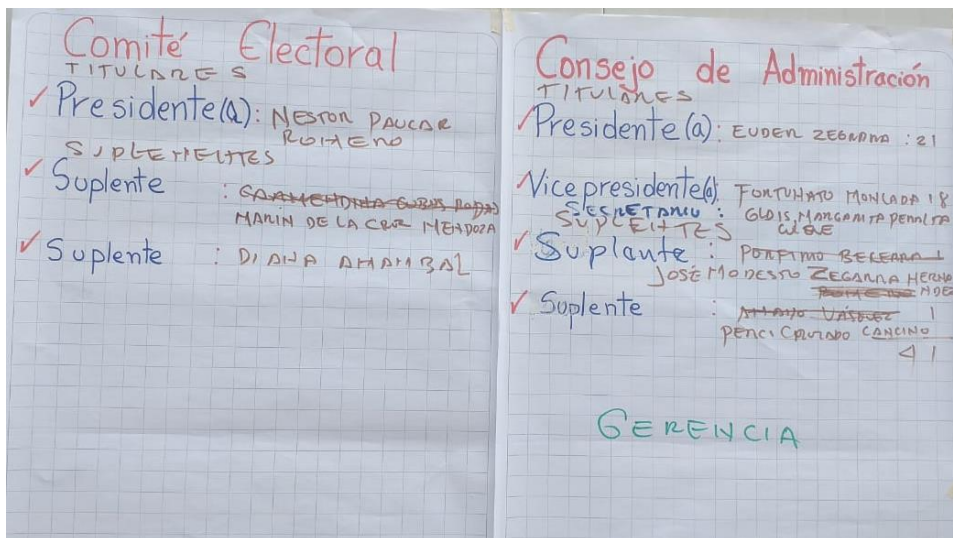 Comité Electoral
TITULARES
Presidente(a): NESTOR PAUCAR
ROMERO
SUPLEMENTES
Suplente :
MARIN DE LA CRUZ MENDOZA
Suplente : DIANA AMAMBAL
Consejo de Administración
TITULARES
Presidente(a): EUDER ZEGARRA : 21
Vicepresidente(a): FORTUNATO MONCADA 18
SECRETARIO : GLDIS MARGARITA PERALTA
SUPLENTES
Suplante : PORFIRIO 1
JOSÉ MODESTO ZEGARRA HERNA
NDEZ
Suplente : AMAYO VÁSQUEZ 1
PERCI CRUZADO CANCINO
41
GERENCIA